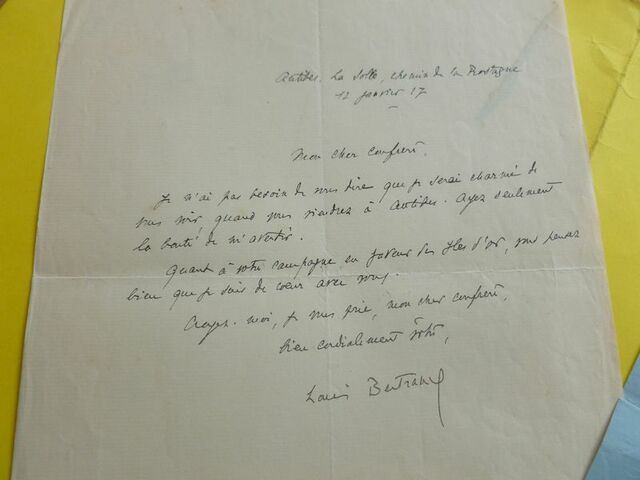 Antibes. La Solle, chemin de la Rostagne
12 janvier 37
Mon cher confrère,
Je n'ai pas besoin de vous dire que je serai charmé de
vous voir, quand vous viendrez à Antibes. Ayez seulement
la bonté de m'avertir.
Quant à votre campagne en faveur des Iles d'or, vous pensez
bien que je suis de cœur avec vous.
Croyez-moi, je vous prie, mon cher confrère,
bien cordialement vôtre,
Louis Bertrand